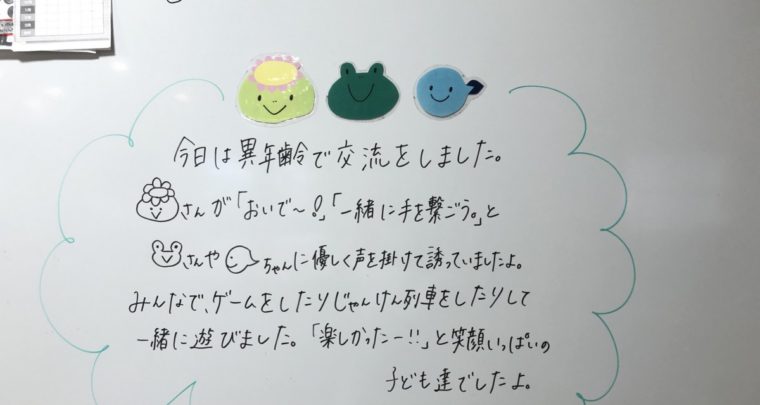 今日は異年齢で交流をしました。
さんが「おいで～!」「一緒に手を繋ごう。」と
さんや ちゃんに優しく声を掛けて誘っていましたよ。
みんなで、ゲームをしたりじゃんけん列車をしたりして
一緒に遊びました。「楽しかったー!!」と笑顔いっぱいの
子ども達でしたよ。